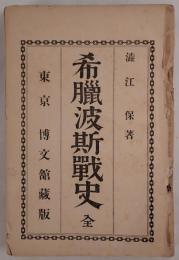 澁江 保著
希臘波斯戰史 全
東京 博文館藏版